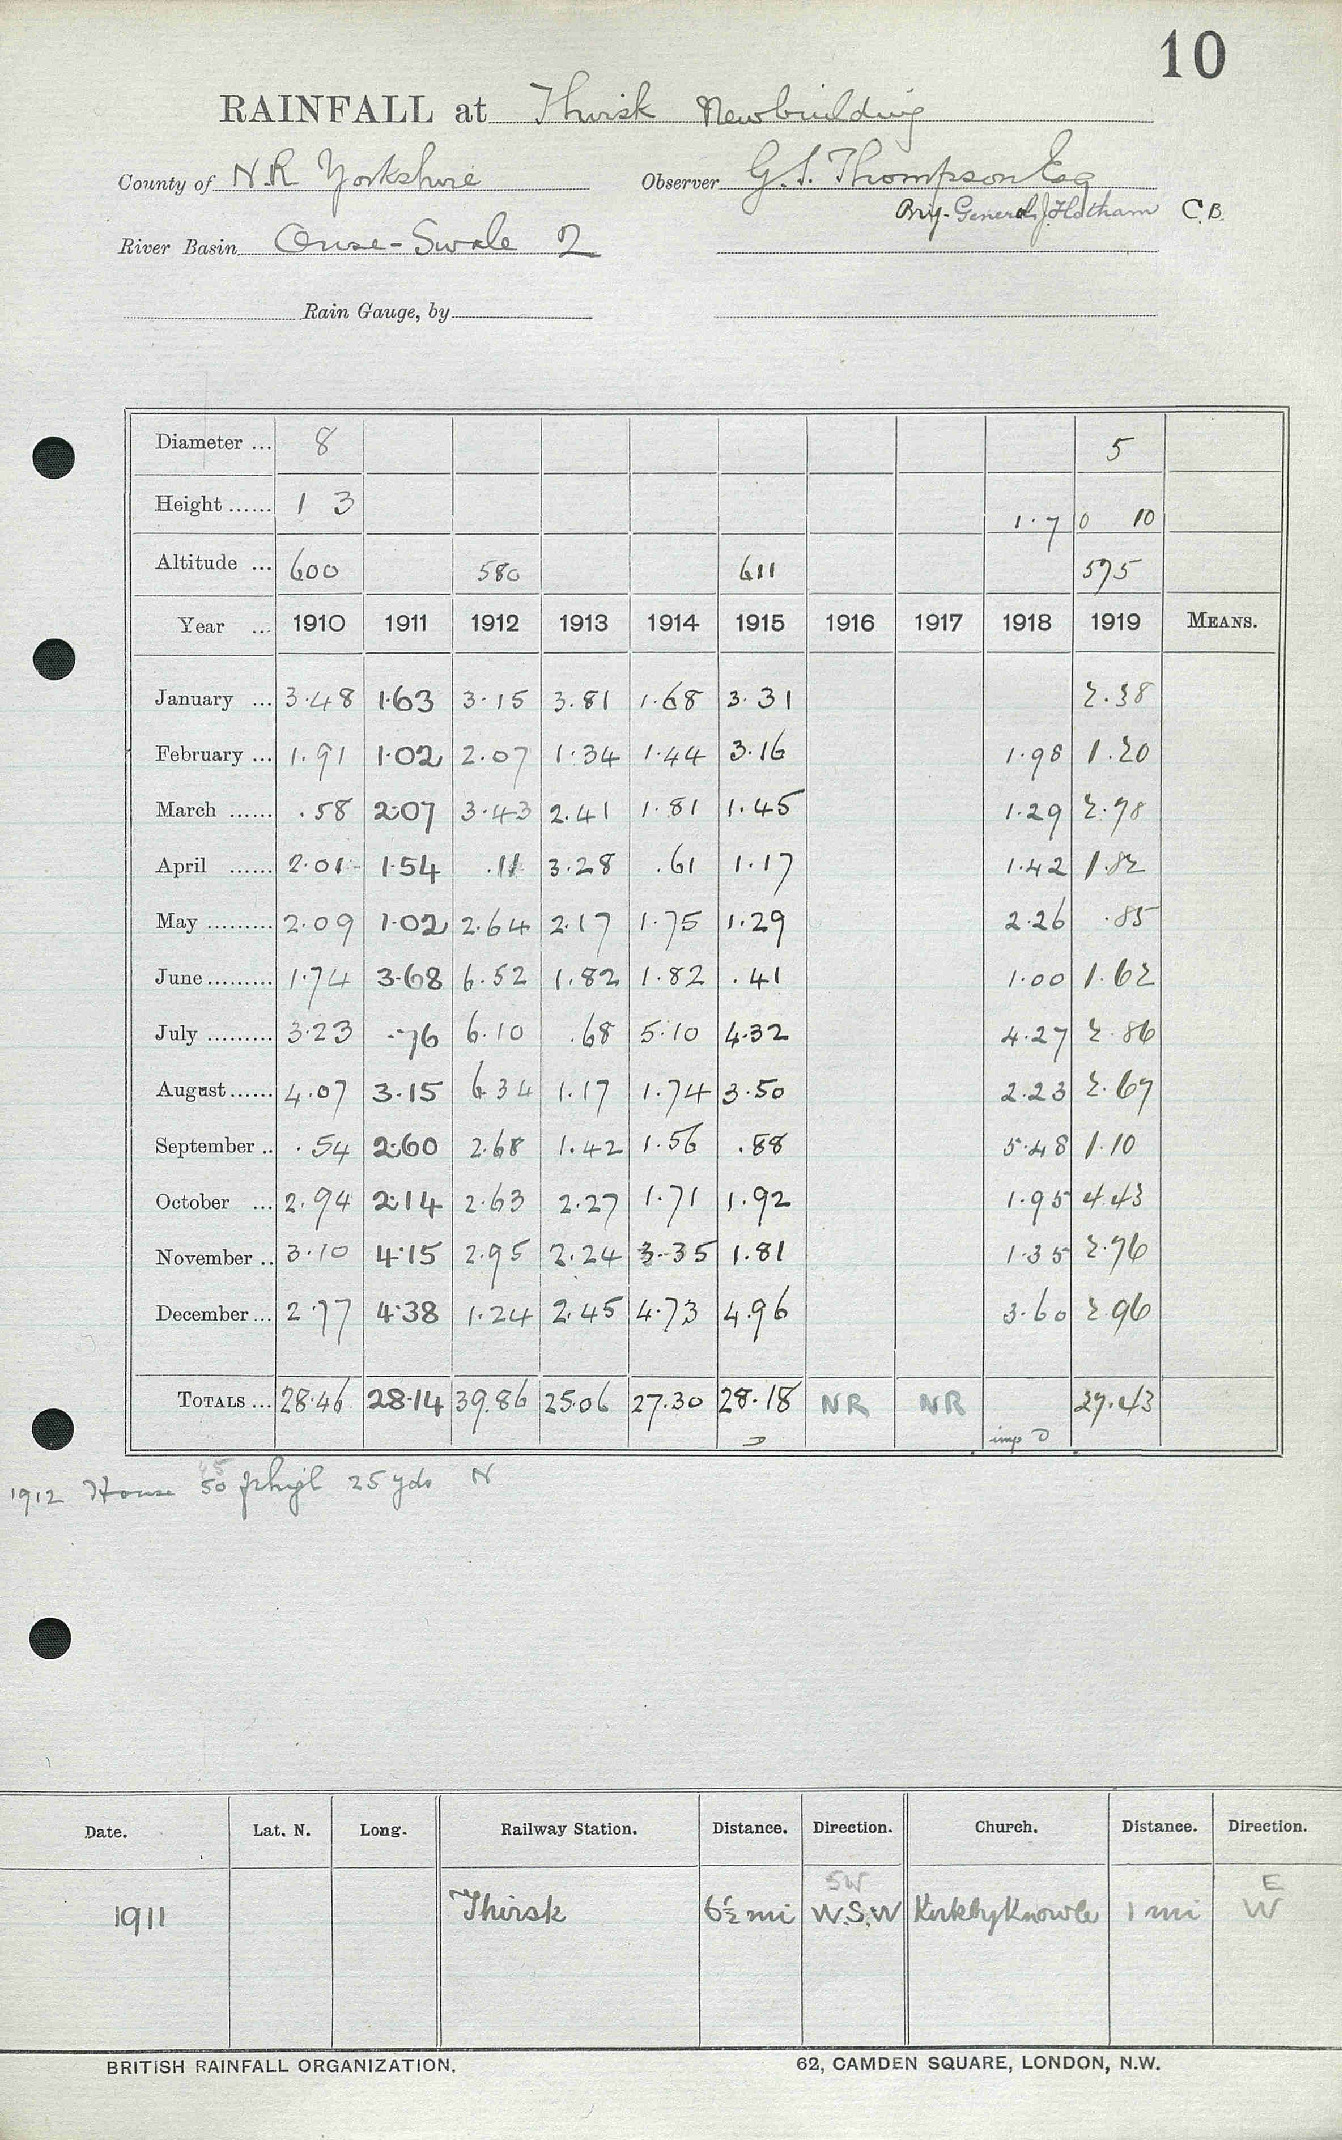 10
RAINFALL at Thirsk Newbuilding
County of N.R Yorkshire Observer G. S. Thompson Esq
Brig-General J. Hotham C.B.
River Basin Ouse-Swale 2
Rain Gauge, by
Diameter ... 8 5
Height ...... 1 3 1.7 0 10
Altitude ... 600 580 611 575
Year ... 1910 1911 1912 1913 1914 1915 1916 1917 1918 1919 MEANS.
January ... 3.48 1.63 3.15 3.81 1.68 3.31 2.38
February ... 1.91 1.02 2.07 1.34 1.44 3.16 1.98 1.20
March ...... .58 2.07 3.43 2.41 1.81 1.45 1.29 2.78
April ...... 2.01 1.54 .11 3.28 .61 1.17 1.42 1.82
May ......... 2.09 1.02 2.64 2.17 1.75 1.29 2.26 .85
June ......... 1.74 3.68 6.52 1.82 1.82 .41 1.00 1.62
July ......... 3.23 .76 6.10 .68 5.10 4.32 4.27 2.86
August ...... 4.07 3.15 6.34 1.17 1.74 3.50 2.23 2.67
September .. .54 2.60 2.68 1.42 1.56 .88 5.48 1.10
October ... 2.94 2.14 2.63 2.27 1.71 1.92 1.95 4.43
November .. 3.10 4.15 2.95 2.24 3.35 1.81 1.35 2.76
December ... 2.77 4.38 1.24 2.45 4.73 4.96 3.60 2.96
TOTALS ... 28.46 28.14 39.86 25.06 27.30 28.18 NR NR 27.43
D imp D
1912 House 50 ft high 25 yds N
Date. Lat. N. Long. Railway Station. Distance. Direction. Church. Distance. Direction.
SW E
1911 Thirsk 6½ mi W.S.W Kirkby Knowle 1 mi W
BRITISH RAINFALL ORGANIZATION. 62, CAMDEN SQUARE, LONDON, N.W.